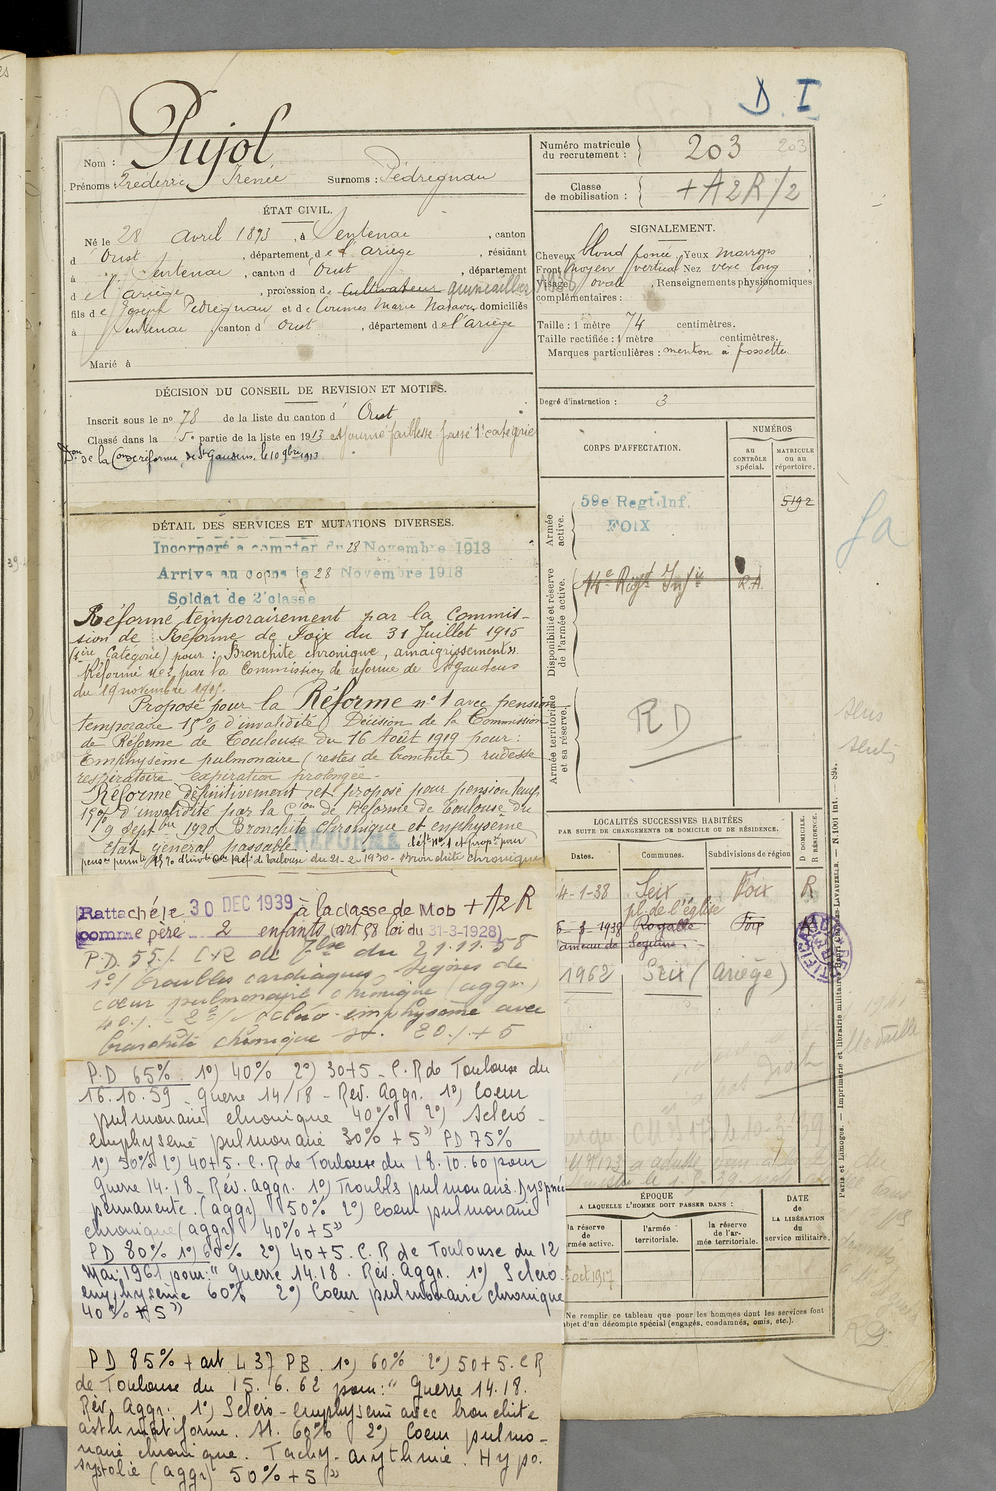 D. I
Pujol
Nom :
Prénoms : Fréderic Irenée Surnoms : Pédregnau
ÉTAT CIVIL.
Né le 28 avril 1893, à Sentenac, canton
d'Oust, département de l'ariège, résidant
à Sentenac, canton d'Oust, département
de l'ariège, profession de cultivateur quincailler 1938
fils de Joseph Pedregnau et de Coumes Marie domiciliés
à Sentenac canton d'Oust, département de l'ariège
Marié à
DÉCISION DU CONSEIL DE REVISION ET MOTIFS.
Inscrit sous le n° 78 de la liste du canton d'Oust
Classé dans la 5e partie de la liste en 1913 ajourné faiblesse passé 1e categorie
Don de la Con de réforme de St Gaudens, le 10 9bre 1913
DÉTAIL DES SERVICES ET MUTATIONS DIVERSES.
Incorporé a compter du 28 Novembre 1913
Arrivé au corps le 28 Novembre 1913
Soldat de 2e classe
Réformé temporairement par la Commis-
sion de Réforme de Foix du 31 Juillet 1915
(1ère Catégorie) pour : Bronchite chronique, amaigrissement.
Réformé n°2 par la Commission de reforme de St gaudens
du 19 novembre 1915.
Proposé pour la Réforme n°1 avec pension
temporaire 15% d'invalidité Décision de la Commission
de Réforme de Toulouse du 16 Août 1919 pour :
Emphysème pulmonaire (restes de bronchite) rudesse
respiratoire expiration prolongée.
Réformé définitivement et proposé pour pension temp.
15% d'invalidité par la Cion de Réforme de Toulouse du
9 Septbre 1920 Bronchite chronique et emphysème
Etat general passable.
RÉFORME
réf. de Toulouse du 21-2-1930 - Bronchite chronique
Rattaché le 30 DEC 1939 à la classe de Mob + A2R
comme père 2 enfants (art 58 loi du 31-3-1928)
P.D. 55% C.R de Tlse du 21.11.58
1°/ troubles cardiaques, signes de
coeur pulmonaire chronique (aggr)
40% - 2°/ scléro-emphysème avec
bronchite chronique St. 20% + 5
P.D 65% 1°) 40% 2°) 30+5 - C.R de Toulouse du
16.10.59 - Guerre 14/18 - Rev. Aggr. 1°) Coeur
pulmonaire chronique 40% 2°) Scléro-
emphyseme pulmonaire 30% + 5" PD 75%
1°) 50% 2°) 40+5. C.R de Toulouse du 18.10.60 pour
Guerre 14.18 - Rev. aggr. 1°) Troubls pulmonaires. Dyspnée
permanente. (aggr) 50% 2°) Coeur pulmonaire
chronique (aggr) 40% + 5"
PD 80% 1°) 60% 2°) 40+5. C.R de Toulouse du 12
Mai 1961 pour : "Guerre 14.18. Rev. Aggr. 1°) Scléro
emphyseme 60% 2°) Coeur pulmonaire chronique
40% + 5"
PD 85% + art L 37 PB. 1°) 60% 2°) 50+5. CR
de Toulouse du 15.6.62 pour : "Guerre 14.18.
Rev. Aggr. 1°) Scléro-emphyseme avec bronchite
asthmatiforme. St. 60% 2°) Coeur pulmo-
naire chronique. Tachy-arythmie. Hypo.
systolie (aggr) 50% + 5"
Numéro matricule
du recrutement : 203 203
Classe
de mobilisation : +A2R/2
SIGNALEMENT.
Cheveux blond foncé Yeux marrons
Front moyen vertical Nez vexe long
Visage ovale, Renseignements physionomiques
complémentaires :
Taille : 1 mètre 74 centimètres.
Taille rectifiée : 1 mètre centimètres.
Marques particulières : menton à fossette
Degré d'instruction : 3
CORPS D'AFFECTATION.
NUMÉROS
AU CONTRÔLE spécial.
MATRICULE ou au répertoire.
Armée active.
59e Regt. Inf.
FOIX
5192
Disponibilité et réserve de l'armée active.
14e Regt Infie
R.A.
Armée territoriale et sa réserve.
RD
LOCALITÉS SUCCESSIVES HABITÉES
PAR SUITE DE CHANGEMENTS DE DOMICILE OU DE RÉSIDENCE.
D DOMICILE.
R RÉSIDENCE.
Dates. Communes. Subdivisions de région
4-1-38 Seix Foix R
pl. de l'église
6-3-1938 Royalle Foix
1962 Seix (Ariège)
ÉPOQUE
A LAQUELLE L'HOMME DOIT PASSER DANS :
DATE
de
LA LIBÉRATION
du
service militaire.
la réserve
de
armée active.
l'armée
territoriale.
la réserve
de l'ar-
mée territoriale.
oct 1917
Ne remplir ce tableau que pour les hommes dont les services font
objet d'un décompte spécial (engagés, condamnés, omis, etc.).
Paris et Limoges. — Imprimerie et librairie militaires Henri Charles-LAVAUZELLE. — N. 1001 int. — 894.